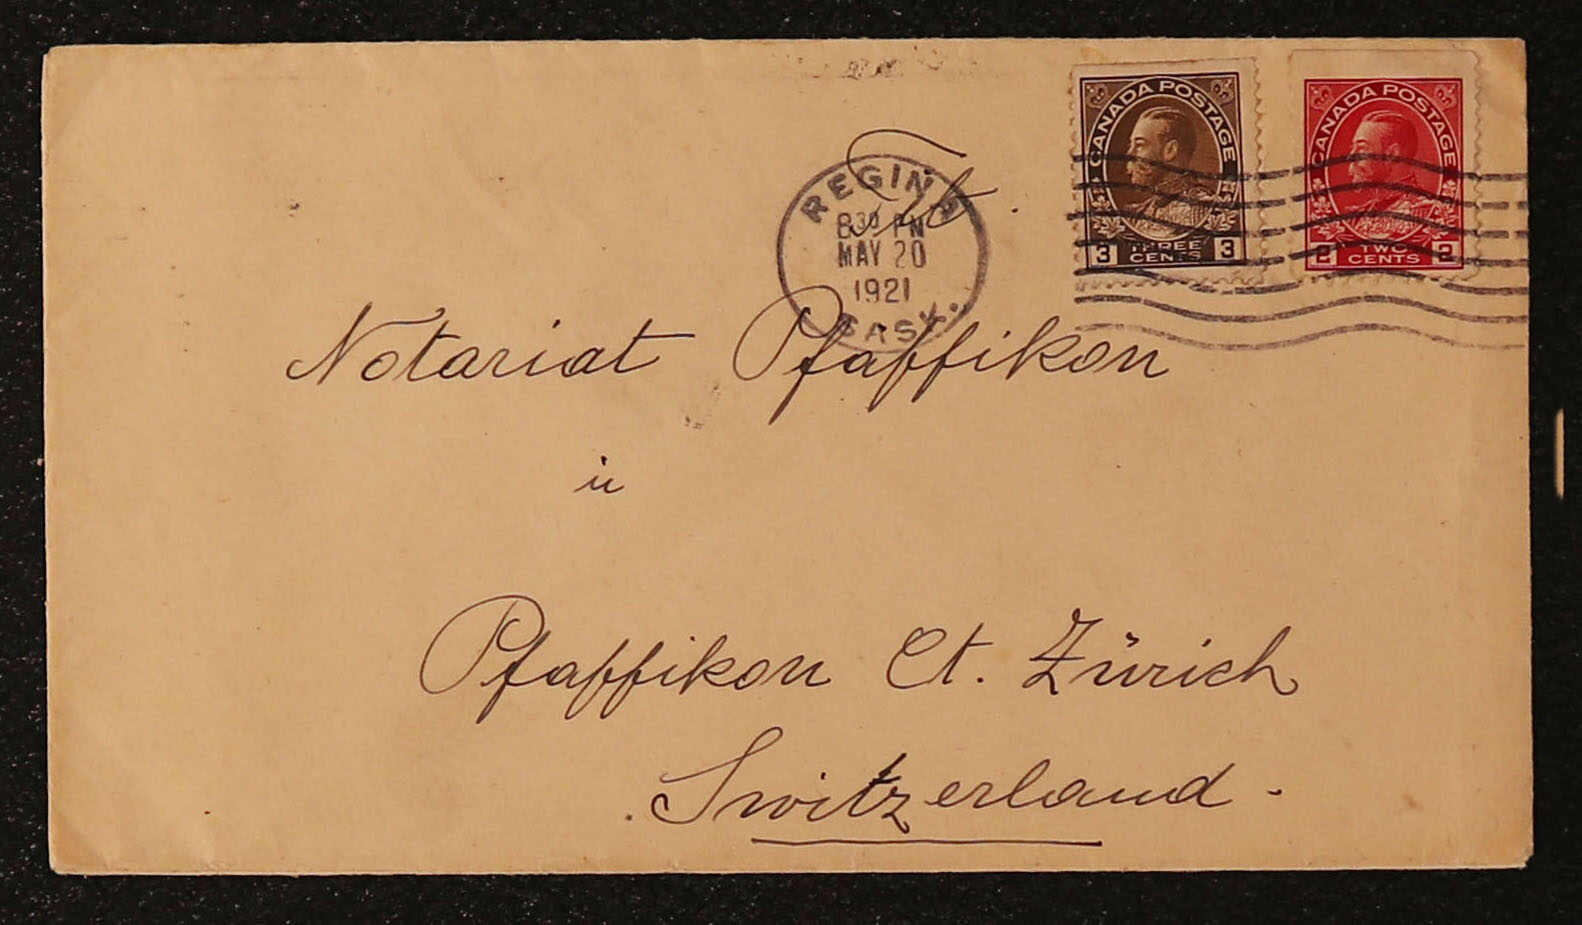 CANADA POSTAGE
3 THREE CENTS 3
CANADA POSTAGE
2 TWO CENTS 2
REGINA
8 30 PM
MAY 20
1921
SASK.
Notariat Pfaffikon
in
Pfaffikon Ct. Zürich
Switzerland.